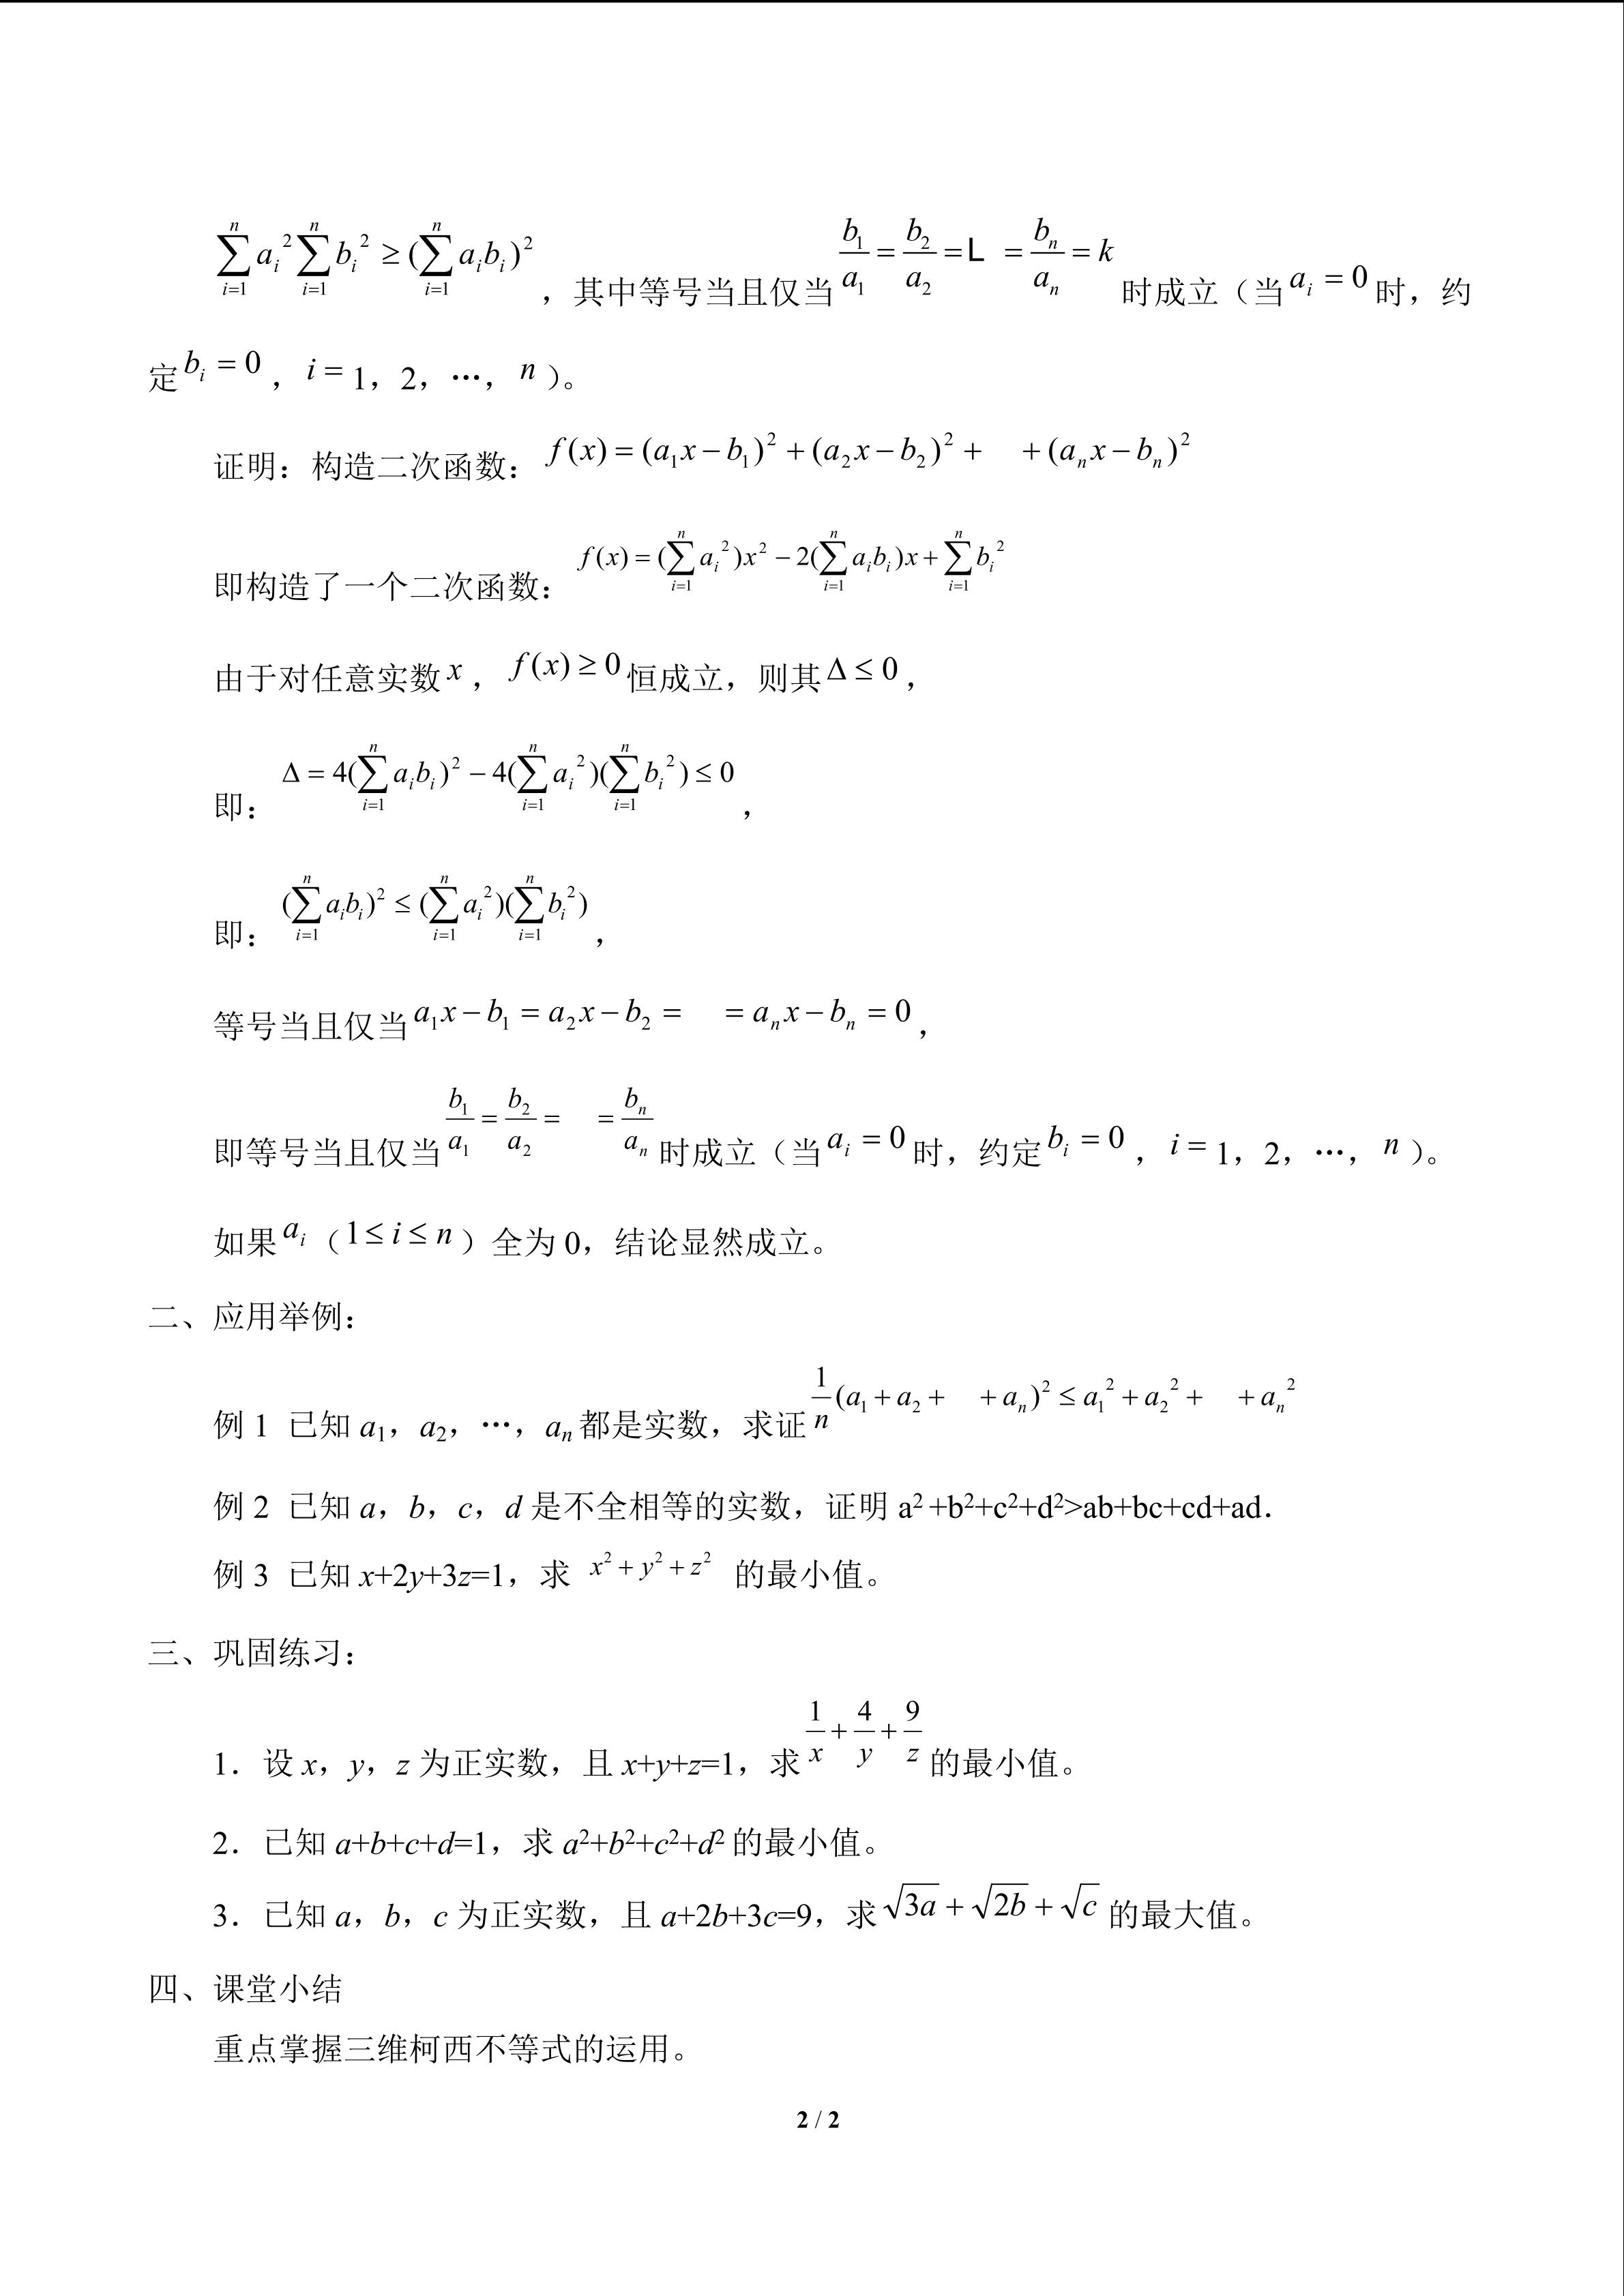 $\sum_{i=1}^{n} a_i^2 \sum_{i=1}^{n} b_i^2 \geq (\sum_{i=1}^{n} a_i b_i)^2$，其中等号当且仅当 $\frac{b_1}{a_1} = \frac{b_2}{a_2} = L\ = \frac{b_n}{a_n} = k$ 时成立（当 $a_i = 0$ 时，约
定 $b_i = 0$，$i =$ 1，2，…，$n$）。
证明：构造二次函数：$f(x) = (a_1 x - b_1)^2 + (a_2 x - b_2)^2 + \quad + (a_n x - b_n)^2$
即构造了一个二次函数：$f(x) = (\sum_{i=1}^{n} a_i^2)x^2 - 2(\sum_{i=1}^{n} a_i b_i)x + \sum_{i=1}^{n} b_i^2$
由于对任意实数 $x$，$f(x) \geq 0$ 恒成立，则其 $\Delta \leq 0$，
即：$\Delta = 4(\sum_{i=1}^{n} a_i b_i)^2 - 4(\sum_{i=1}^{n} a_i^2)(\sum_{i=1}^{n} b_i^2) \leq 0$，
即：$(\sum_{i=1}^{n} a_i b_i)^2 \leq (\sum_{i=1}^{n} a_i^2)(\sum_{i=1}^{n} b_i^2)$，
等号当且仅当 $a_1 x - b_1 = a_2 x - b_2 = \quad = a_n x - b_n = 0$，
即等号当且仅当 $\frac{b_1}{a_1} = \frac{b_2}{a_2} = \quad = \frac{b_n}{a_n}$ 时成立（当 $a_i = 0$ 时，约定 $b_i = 0$，$i =$ 1，2，…，$n$）。
如果 $a_i$（$1 \leq i \leq n$）全为 0，结论显然成立。
二、应用举例：
例 1 已知 $a_1$，$a_2$，…，$a_n$ 都是实数，求证 $\frac{1}{n}(a_1 + a_2 + \quad + a_n)^2 \leq a_1^2 + a_2^2 + \quad + a_n^2$
例 2 已知 a，b，c，d 是不全相等的实数，证明 a² +b²+c²+d²>ab+bc+cd+ad．
例 3 已知 x+2y+3z=1，求 $x^2 + y^2 + z^2$ 的最小值。
三、巩固练习：
1．设 x，y，z 为正实数，且 x+y+z=1，求 $\frac{1}{x} + \frac{4}{y} + \frac{9}{z}$ 的最小值。
2．已知 a+b+c+d=1，求 a²+b²+c²+d² 的最小值。
3．已知 a，b，c 为正实数，且 a+2b+3c=9，求 $\sqrt{3a} + \sqrt{2b} + \sqrt{c}$ 的最大值。
四、课堂小结
重点掌握三维柯西不等式的运用。
2 / 2